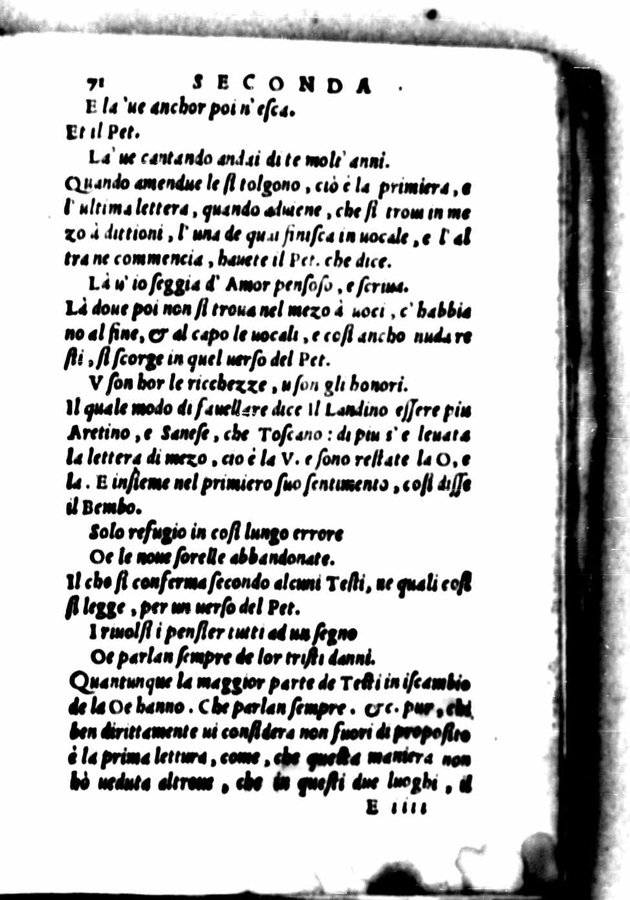 71 SECONDA
E la 'ue anchor poi n' esca.
Et il Pet.
La' ue cantando andai di te molt' anni.
Quando amendue le si tolgono, ciò è la primiera, e
l' ultima lettera, quando aduiene, che si troui in me
zo à dittioni, l' una de quai finisca in uocale, e l' al
tra ne commencia, hauete il Pet. che dice.
Là u' io seggia d' Amor pensoso, e scriua.
Là doue poi non si troua nel mezo à uoci, c' habbia
no al fine, & al capo le uocali, e cosi ancho nuda re
sti, si scorge in quel uerso del Pet.
V son hor le ricchezze, u son gli honori.
Il quale modo di fauellare dice il Landino essere piu
Aretino, e Sanese, che Toscano: di piu s' e leuata
la lettera di mezo, cio è la V. e sono restate la O, e
la. E insieme nel primiero suo sentimento, cosi disse
il Bembo.
Solo refugio in cosi lungo errore
Oe le noue sorelle abbandonate.
Il che si conferma secondo alcuni Testi, ne quali cosi
si legge, per un uerso del Pet.
I riuolsi i pensier tutti ad un segno
Oe parlan sempre de lor tristi danni.
Quantunque la maggior parte de Testi in iscambio
de la Oe hanno. Che parlan sempre. &c. pur, chi
ben dirittamente ui considera non fuori di proposito
è la prima lettura, come, che questa maniera non
hò ueduta altroue, che in questi due luoghi, il
E iiii